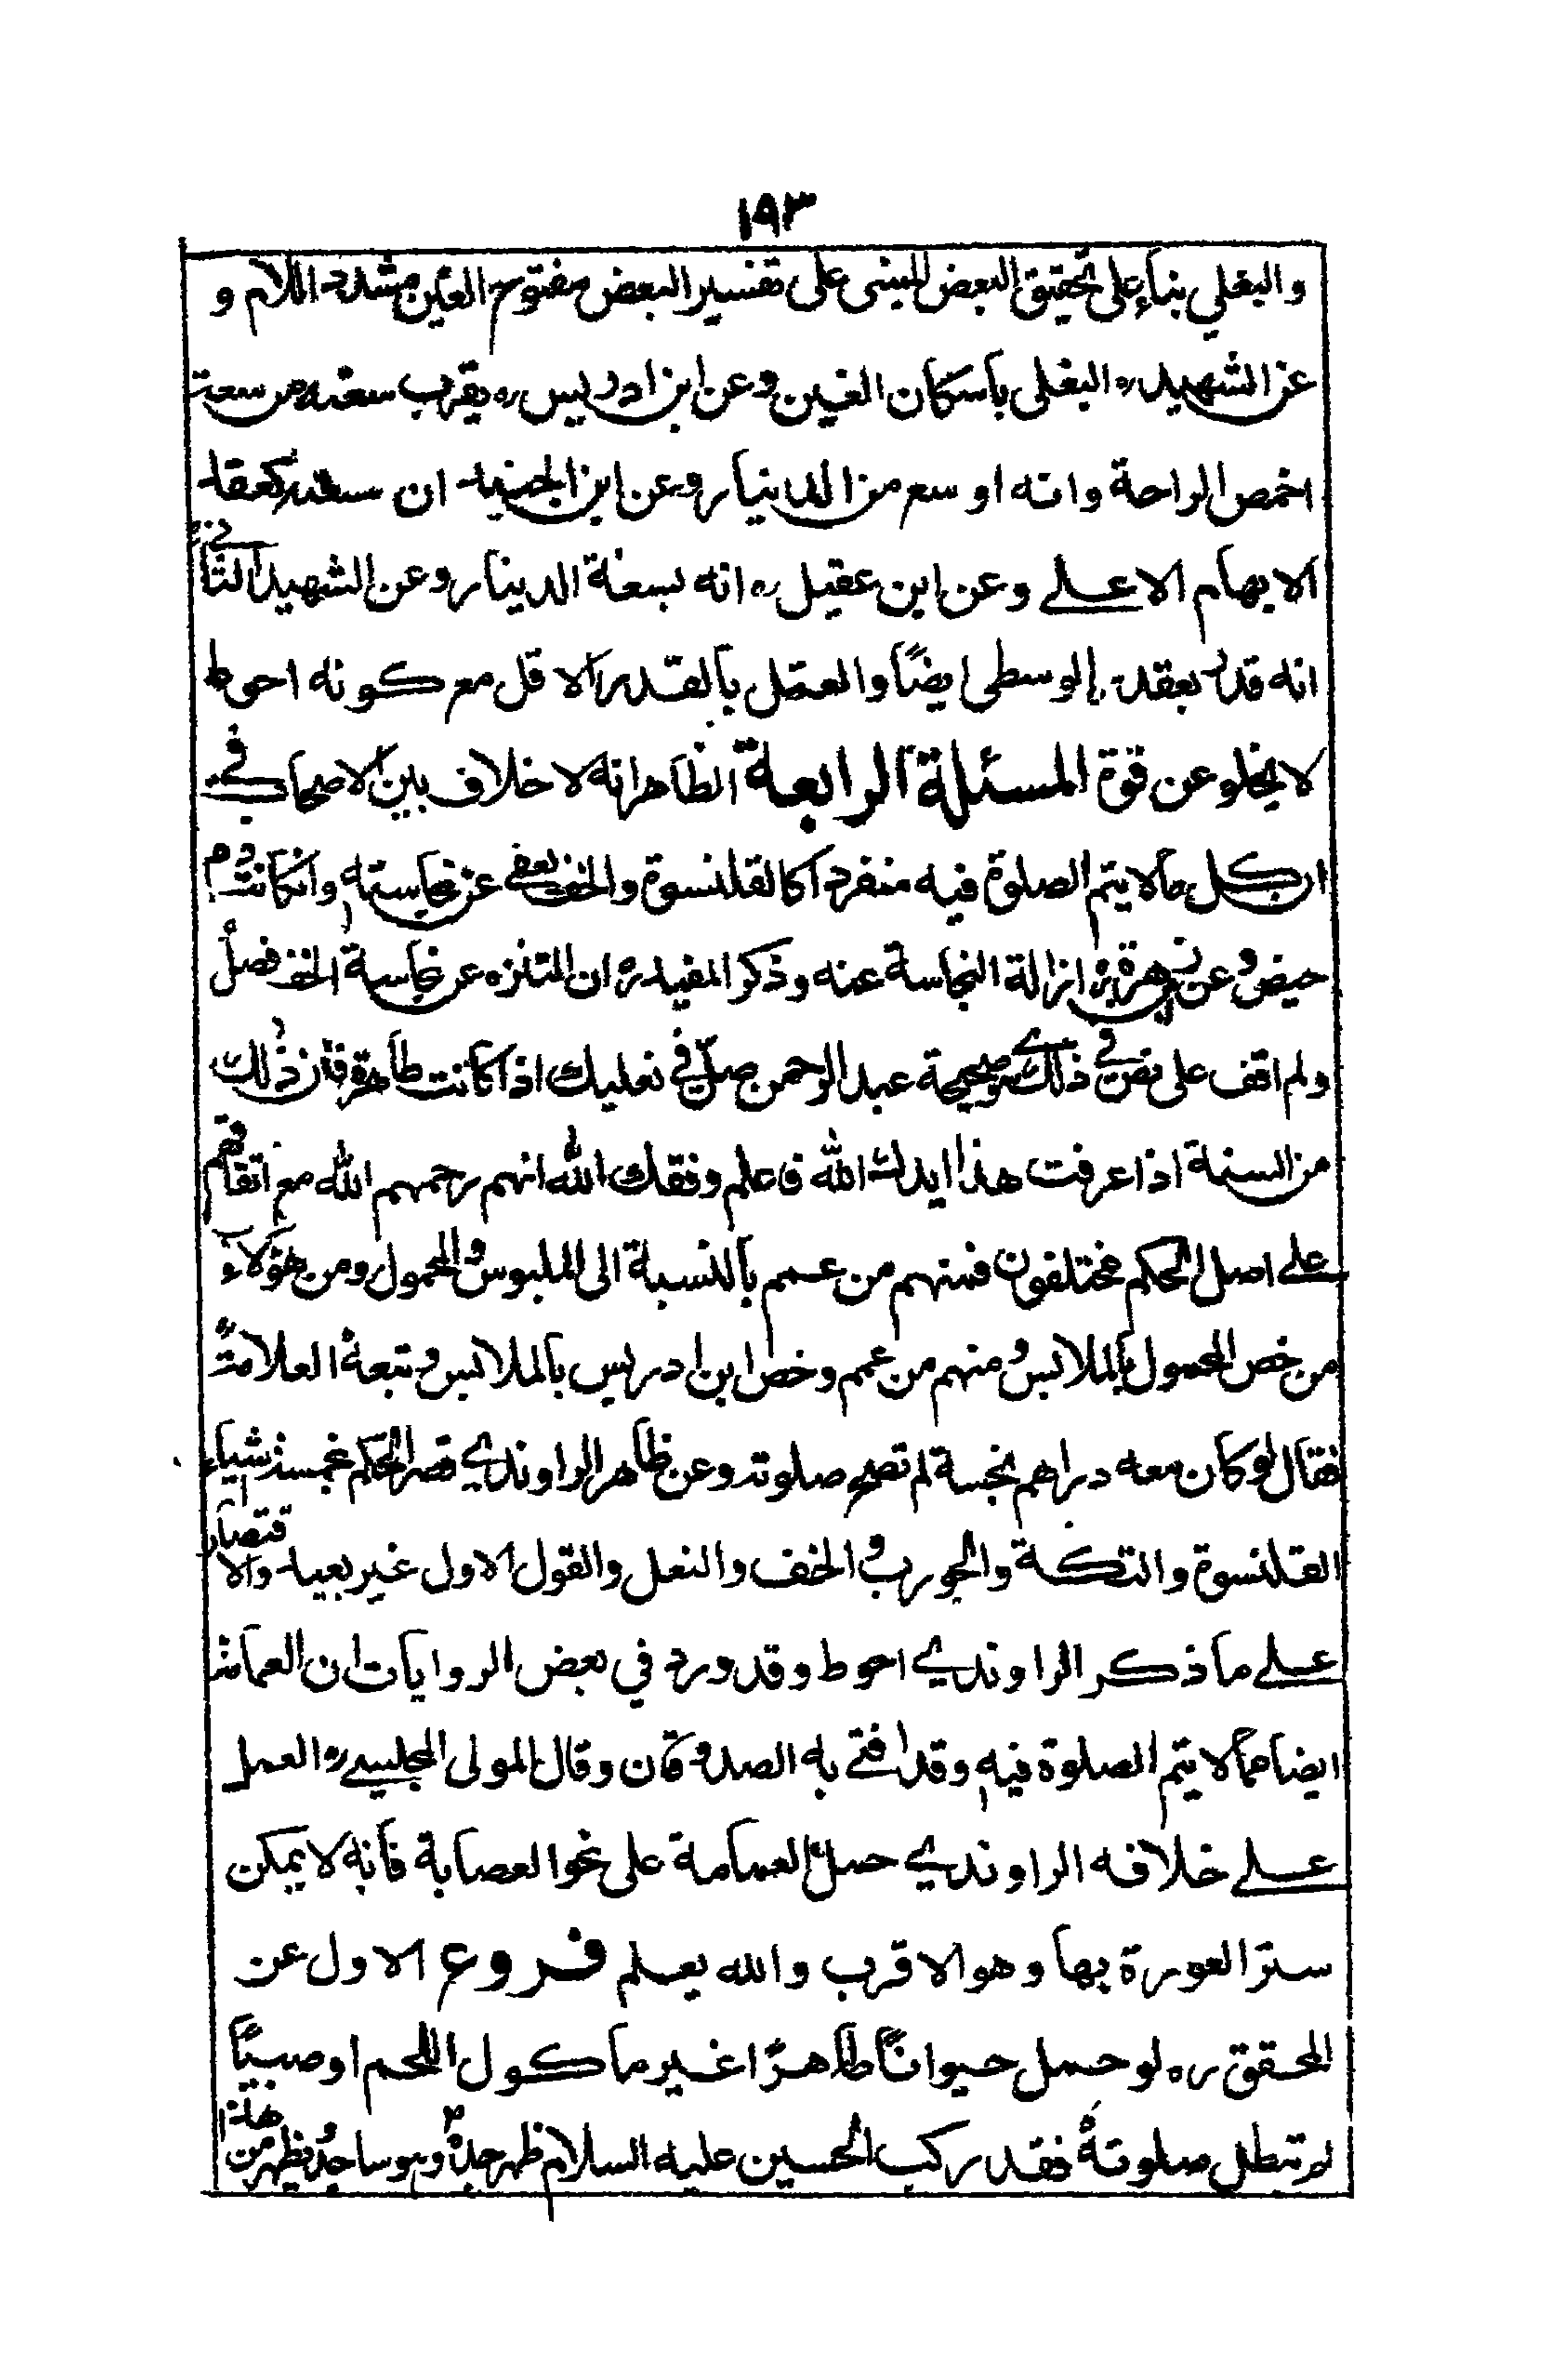 ١٩٣
والبغلي بناء على تحقيق البعض المبنى على تفسير البعض مفتوح الغين مشدد اللام و
عن الشهيد ره البغلى باسكان الغين وعن ابن ادريس ره يقرب سعته من سعة
اخمص الراحة وانه اوسع من الدينار وعن ابن الجنيد ان سعته كعقد
الابهام الاعلے وعن ابن عقيل ره انه بسعة الدينار وعن الشهيد الثانے
انه قدر بعقد الوسطى ايضًا والعمل بالقدر الاقل مع كونه احوط
لا يخلو عن قوة المسئلة الرابعة الظاهر انه لا خلاف بين الاصحاب في
ان كل ما لا يتم الصلوة فيه منفردا كالقلنسوة والخف يعفى عن نجاسته وانكانت دم
حيض وعن ازالة النجاسة عنه وذكر المفيد ره ان التنزه عن نجاسة الخف فضل
ولم اقف على نص في ذلك صحيحة عبد الرحمن صلّ في نعليك اذا كانت طاهرة فان ذلك
من السنة اذا عرفت هذا ايدك الله فاعلم وفقك الله انهم رحمهم الله مع اتفاقهم
علے اصل الحكم مختلفون فمنهم من عمم بالنسبة الى الملبوس والمحمول ومن هؤلاء
من خص المحمول بالملابس ومنهم من عمم وخص ابن ادريس بالملابس وتبعه العلامة
فقال لو كان معه دراهم نجسة لم تصح صلوته وعن ظاهر الراوندي قصر الحكم بخمسة اشياء
القلنسوة والتكة والجورب والخف والنعل والقول الاول غير بعيد والاقتصار
علے ما ذكر الراوندي احوط وقد ورد في بعض الروايات ان العمامة
ايضا مما لا يتم الصلوة فيه وقد افتى به الصدوقان وقال المولى المجلسي ره العمل
علے خلافه الراوندي حمل العمامة على نحو العصابة فانه لا يمكن
ستر العورة بها وهو الاقرب والله يعلم فروع الاول عن
المحقق ره لو حمل حيوانًا طاهرًا غير ماكول اللحم او صبيًا
لم تبطل صلوته فقد ركب الحسين عليه السلام ظهر جده وهو ساجد ويظهر من هذا